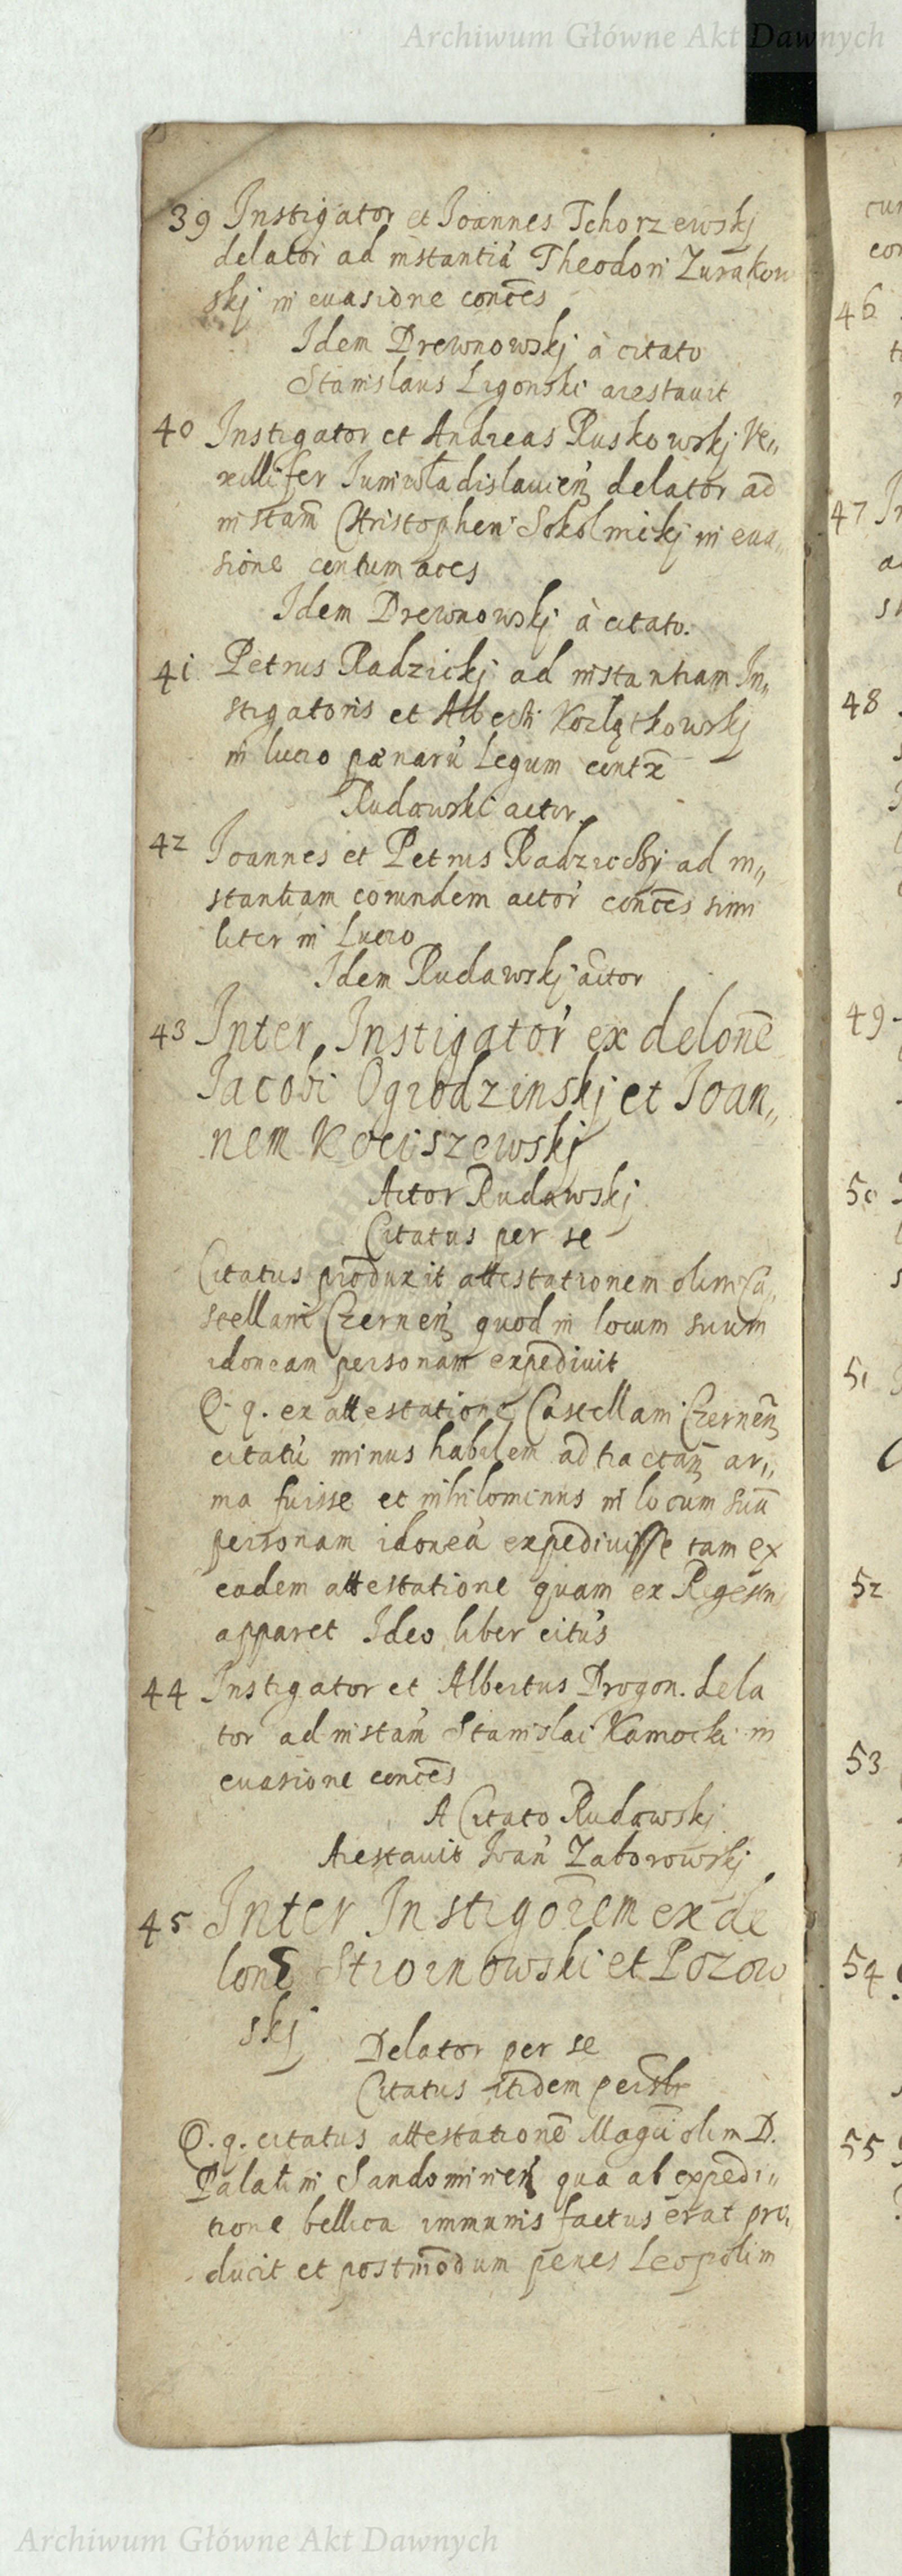 Archiwum Główne Akt Dawnych
39 Instigator et Joannes Tchorzewskj
delator ad instantiã Theodori Zurakow
skj in euasione contẽs
Idem Drewnowskj à citato
Stanislaus Ligonski arestauit
40 Instigator et Andreas Ruskowskj Ve„
xillifer Juniwladislauień delator ad
instam̃ Christopheri Sokolnickj in eua„
sione centum aces
Idem Drewnowskj à citato.
41 Petrus Radzickj ad instantiam In„
stigatoris et Alberti
in lucro pænarũ Legum contx̃
Rudawski actor.
42 Joannes et Petrus Radziccÿ ad in„
stantiam eorundem actor̃ contẽs simi
liter in Lucro
Idem Rudawskj actor
43 Inter Instigator̃ ex delonẽ
Jacobi Ogrodzinskj et Joan„
nem Kociszewskj
Actor Rudawskj
Citatus per se
Citatus produxit attestationem olim Ca„
stellani Czerneń quod in locum suum
idoneam personam expediuit
Q. q. ex attestatione Castellani Czerneń
citatũ minus habilem ad tractañ ar„
ma fuisse et nihilominus in locum suũ
personam idoneã expediuisse tam ex
eadem attestatione quam ex Regestri
apparet Ideo liber citũs
44 Instigator et Albertus Drogon. dela
tor ad instam̃ Stanislai Kamocki in
euasione contẽs
A Citato Rudawskj
Arestauit Iwań Zaborowskj
45 Inter Instigõrem ex de
lonẽ Stroinowski et Pozow
skj
Delator per se
Citatus itidem
Q. q. citatus attestationẽ Magci olim D.
Palatini Sandomirień qua ab expedi„
tione bellica immunis factus erat pro„
ducit et postmõdum penes Leopolim
46
47
48
49
50
51
52
53
54
55
Archiwum Główne Akt Dawnych